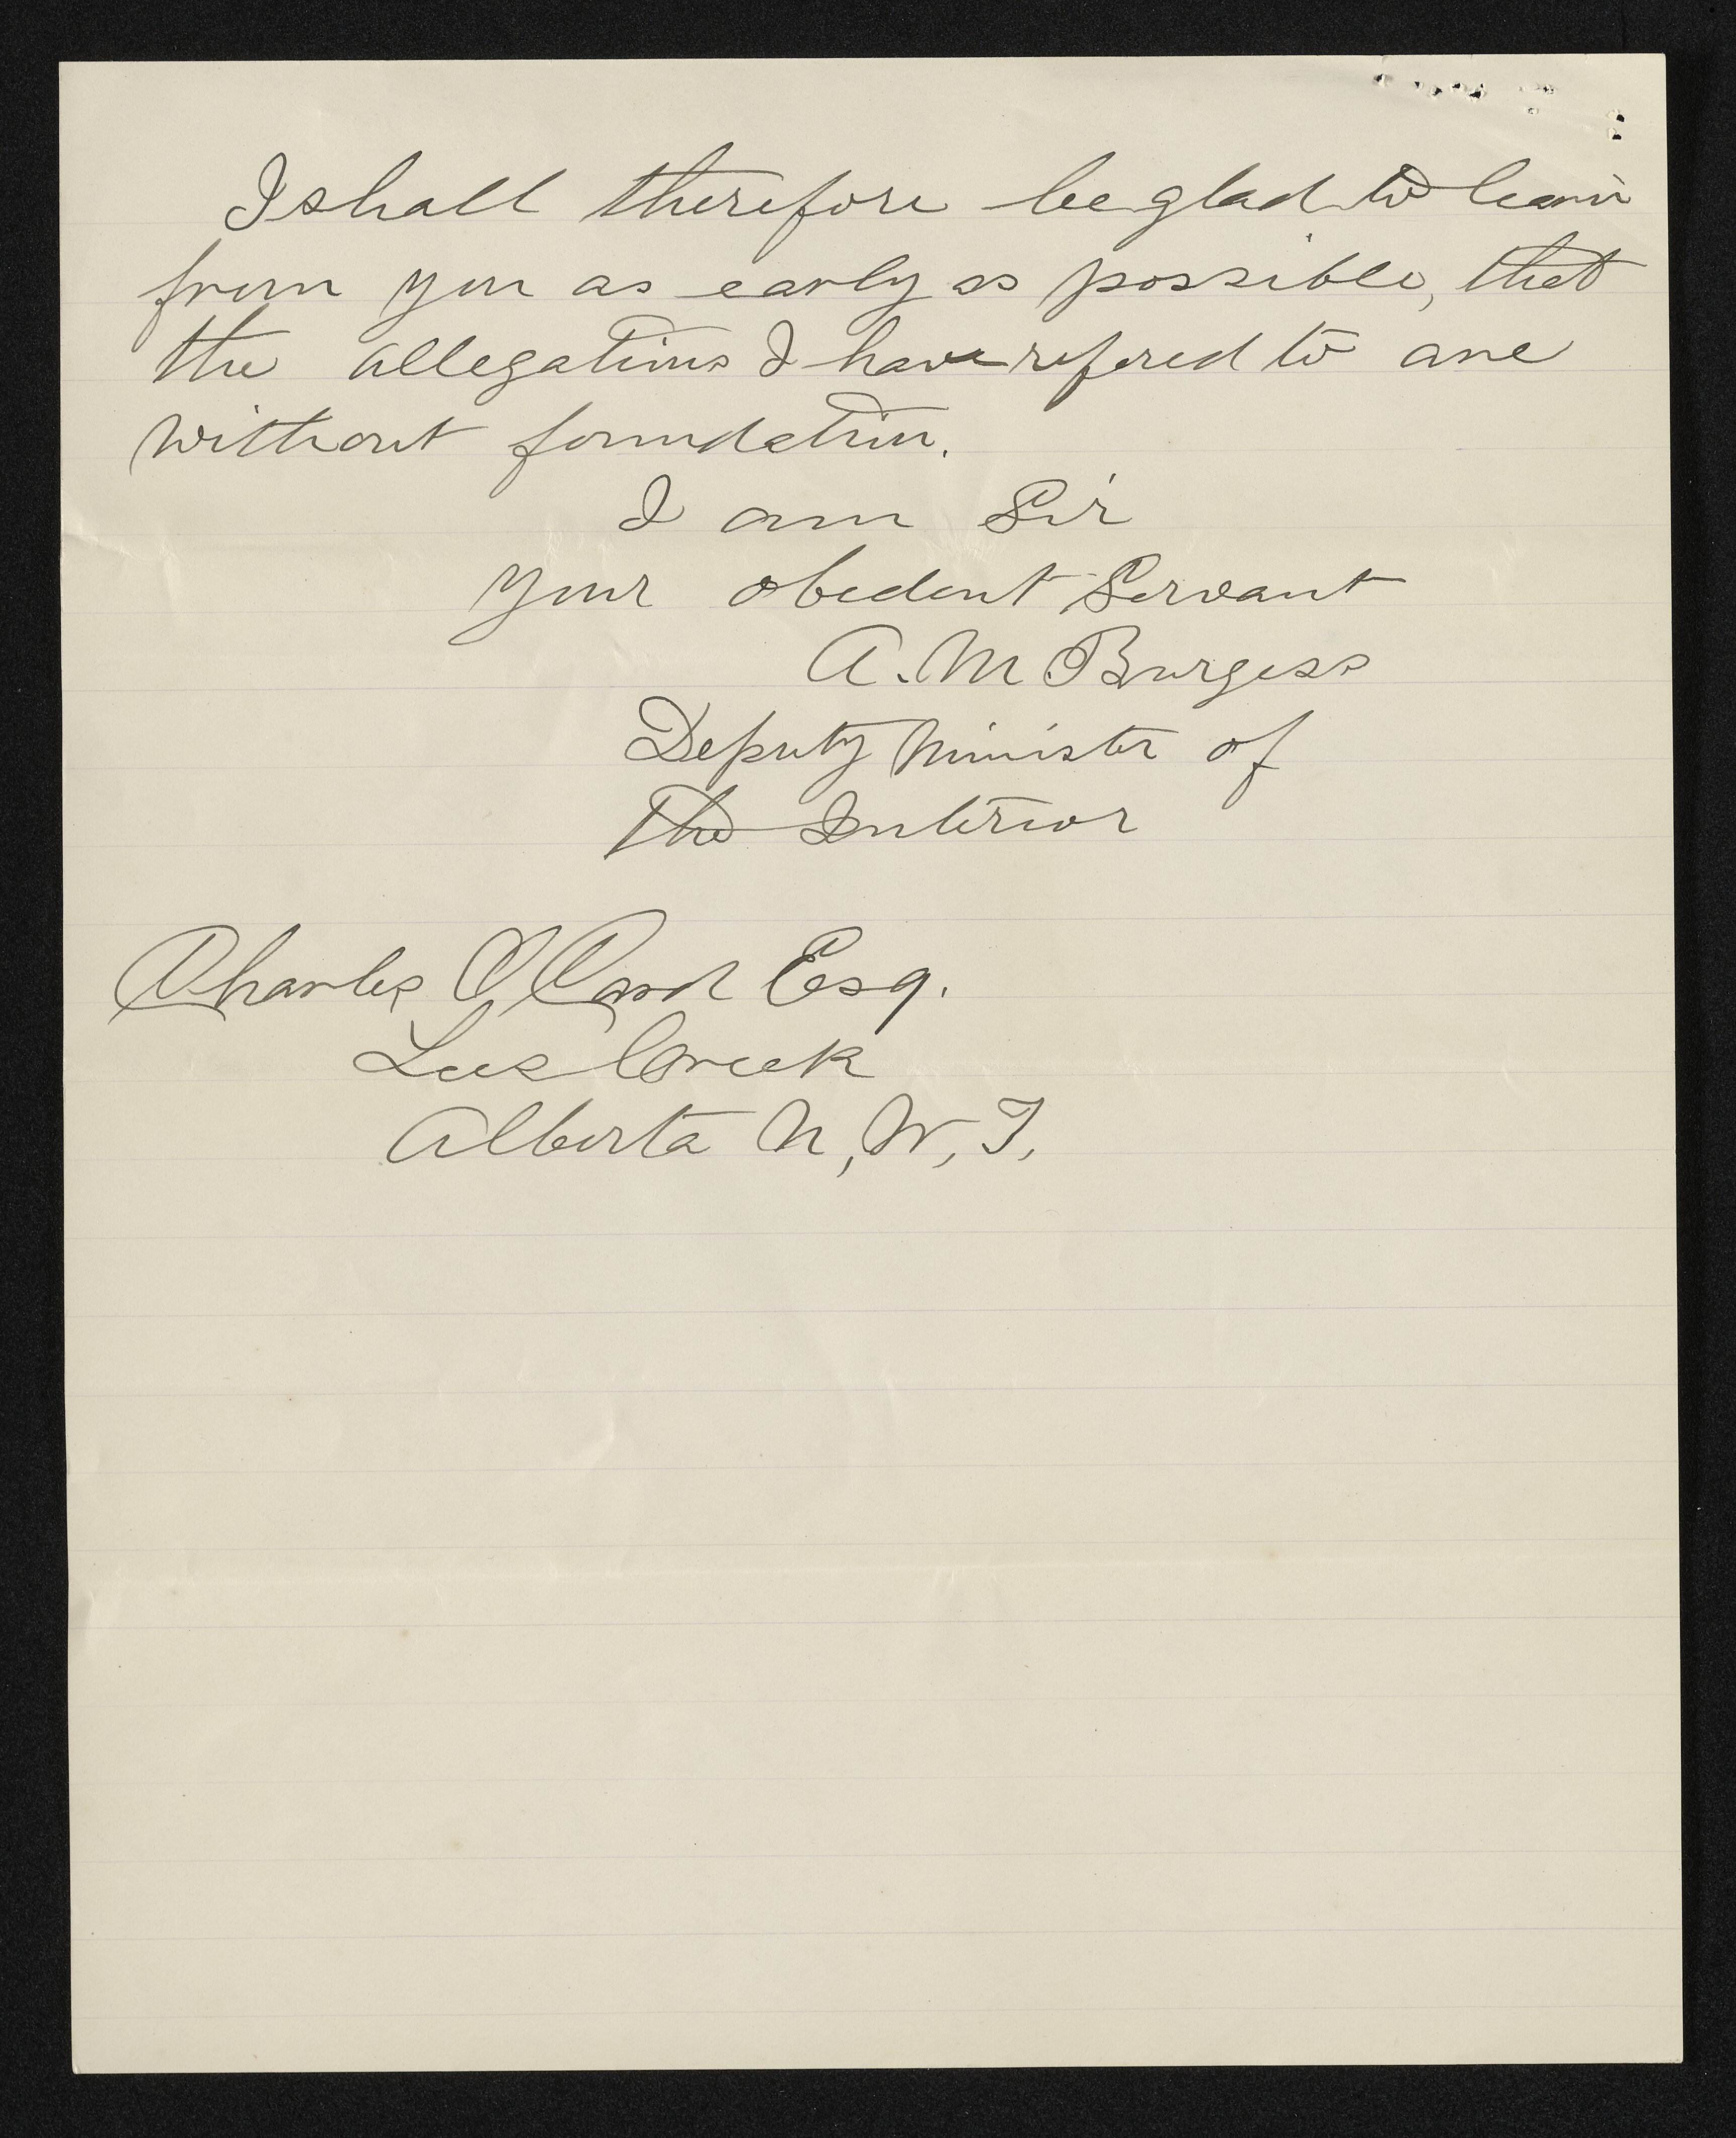 I shall therefore be glad to learn
from you as early as possible, that
the allegations I have refered to are
without foundation.
I am Sir
Your obedent Servant
A. M. Burgess
Deputy Minister of
The Interior
Charles O Card Esq.
Lees Creek
Alberta N, W, T,